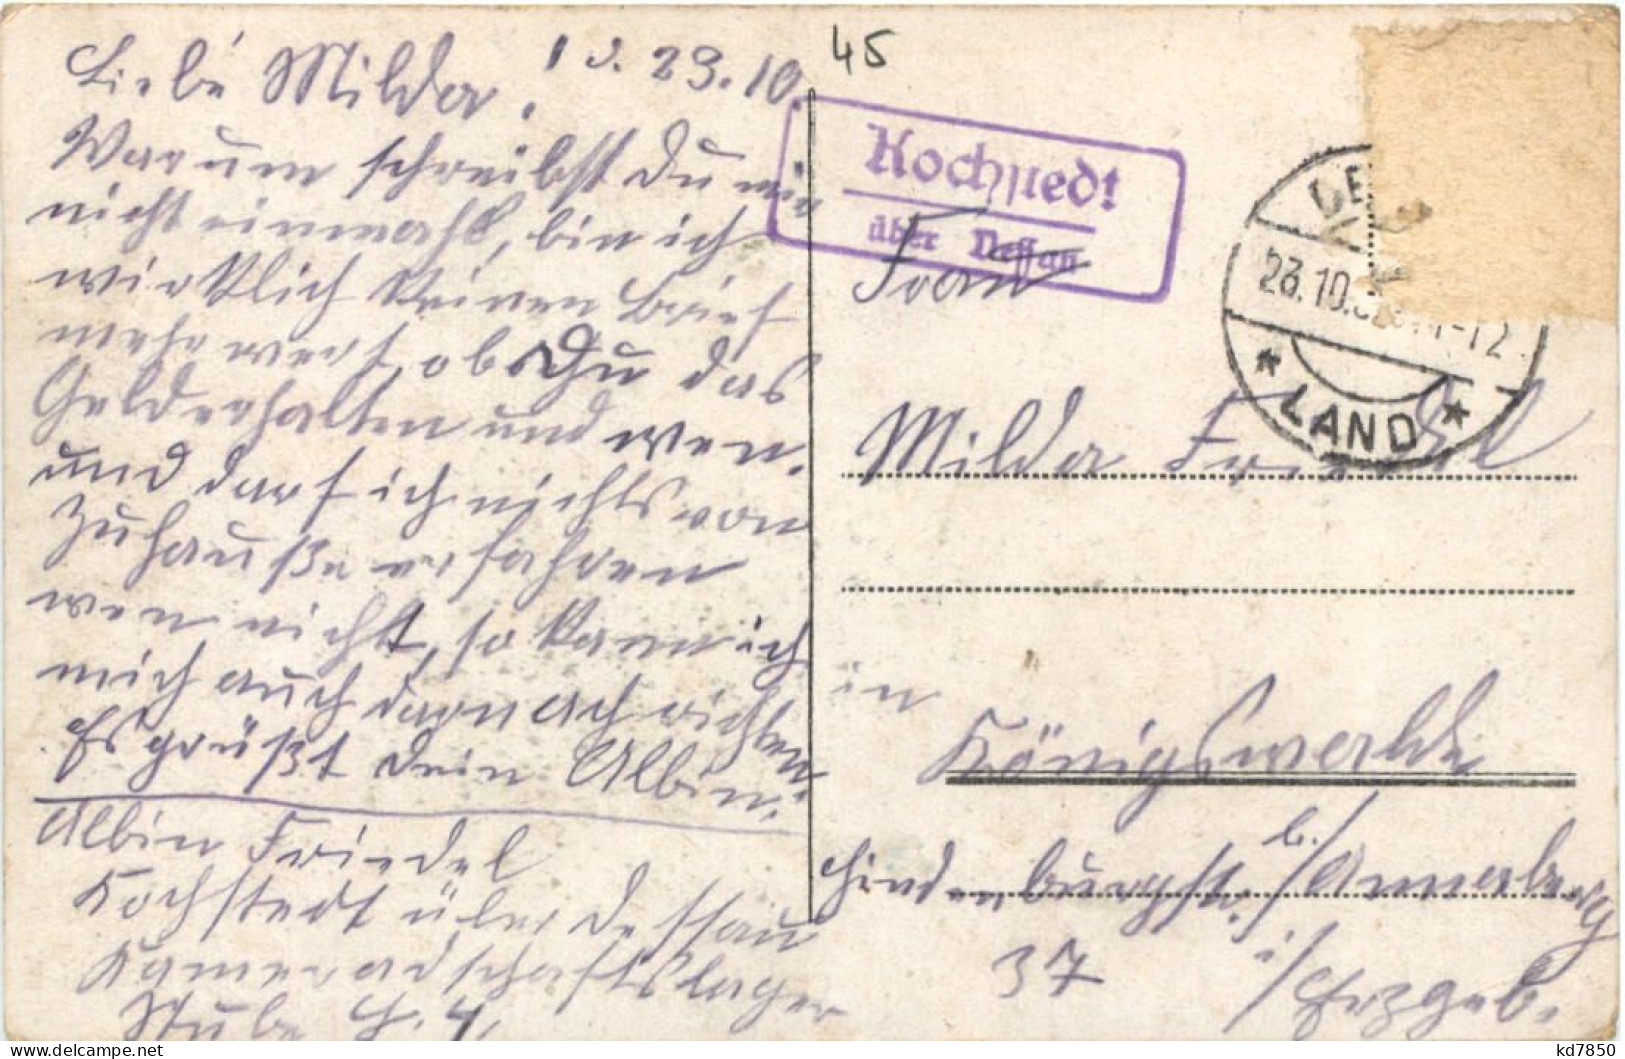 Liebe Milda! d. 23.10.
Warum schreibst Du mir
nicht einmahl, bin ich
wirklich keinen Brief
mehr wert, ob Du das
Geld erhalten und wen.
und darf ich nichts von
Zuhauße erfahren
wen nicht, so kann ich
mich auch darnach richten
Es grüßt dein Albin.
Albin Friedel
Kochstedt über Dessau
Kameradschaftslager
Stube H. 4,
45
Kochstedt
über Dessau
23.10. 11-12
LAND
Frau
Milda Friedel
in
Königswalde
b./Annaberg
Hindenburgstr.
37 i/Erzgeb.
kd7850